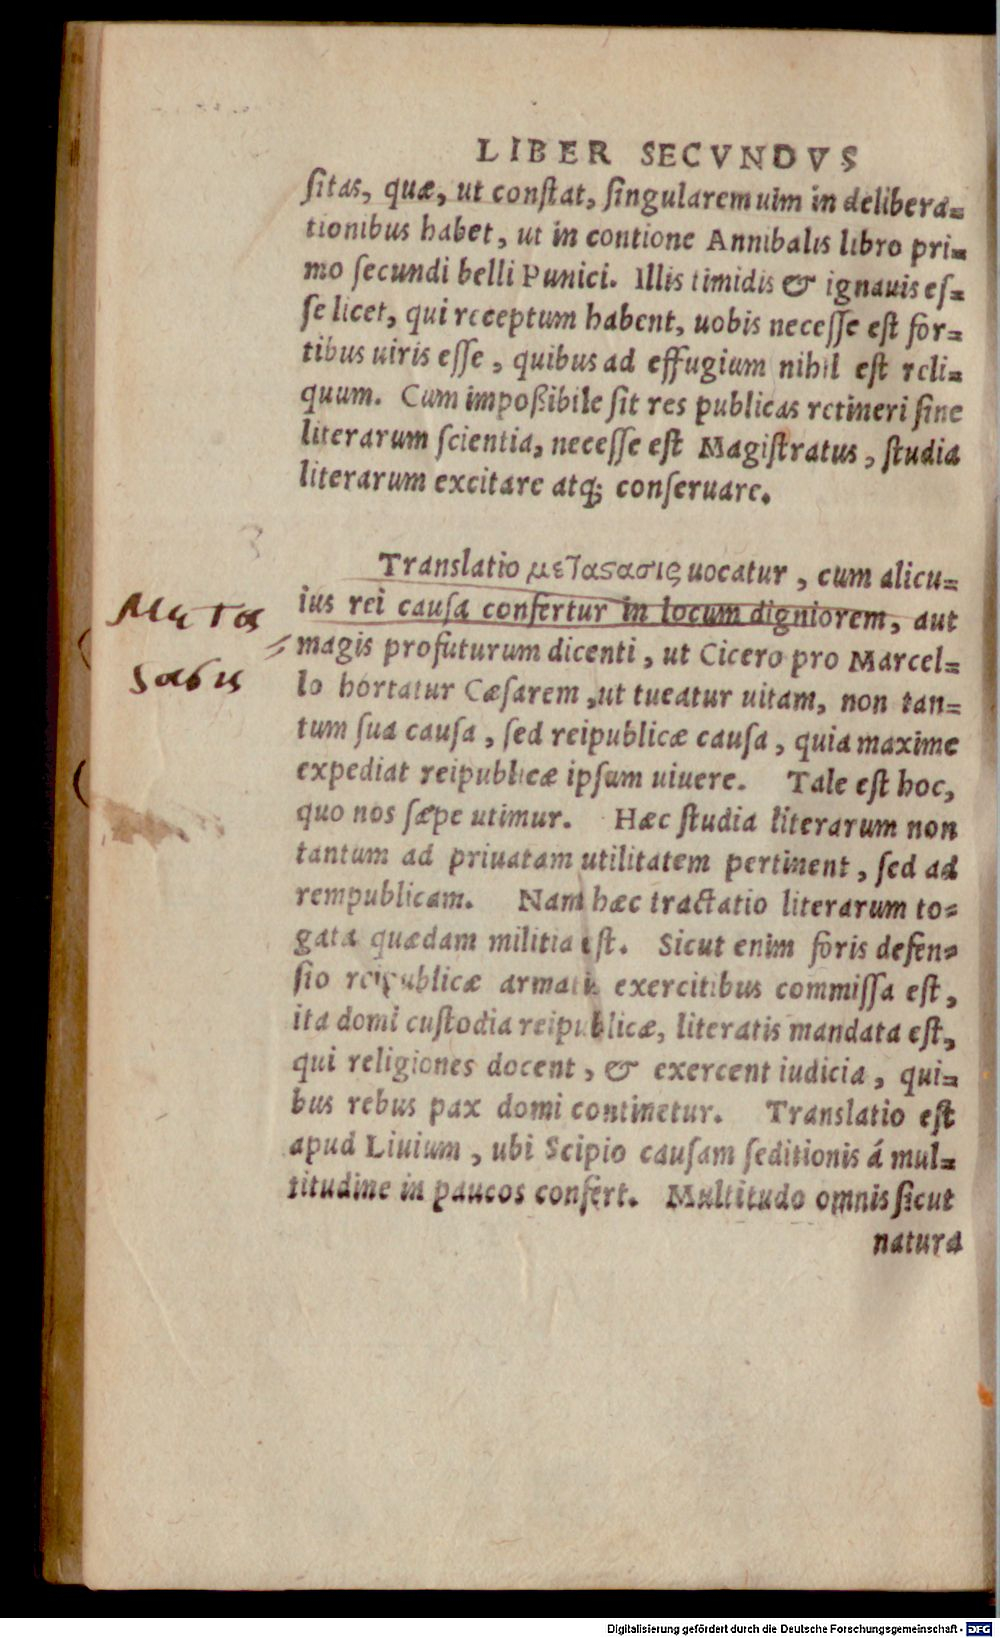 LIBER SECVNDVS
ſitas, quæ, ut conſtat, ſingularem uim in delibera=
tionibus habet, ut in contione Annibalis libro pri=
mo ſecundi belli Punici. Illis timidis & ignauis eſ=
ſe licet, qui receptum habent, uobis neceſſe eſt for=
tibus uiris eſſe, quibus ad effugium nihil eſt reli=
quum. Cum impoßibile ſit res publicas retineri ſine
literarum ſcientia, neceſſe eſt Magiſtratus, ſtudia
literarum excitare atq; conſeruare.
Translatio μετάϛασις uocatur, cum alicu=
ius rei cauſa confertur in locum digniorem, aut
magis profuturum dicenti, ut Cicero pro Marcel=
lo hortatur Cæſarem, ut tueatur uitam, non tan=
tum ſua cauſa, ſed reipublicæ cauſa, quia maxime
expediat reipublicæ ipſum uiuere. Tale eſt hoc,
quo nos ſæpe utimur. Hæc ſtudia literarum non
tantum ad priuatam utilitatem pertinent, ſed ad
rempublicam. Nam hæc tractatio literarum to=
gata quædam militia eſt. Sicut enim foris defen=
ſio reipublicæ armatis exercitibus commiſſa eſt,
ita domi cuſtodia reipublicæ, literatis mandata eſt,
qui religiones docent, & exercent iudicia, qui=
bus rebus pax domi continetur. Translatio eſt
apud Liuium, ubi Scipio cauſam ſeditionis á mul=
titudine in paucos confert. Multitudo omnis ſicut
natura
Digitalisierung gefördert durch die Deutsche Forschungsgemeinschaft - DFG